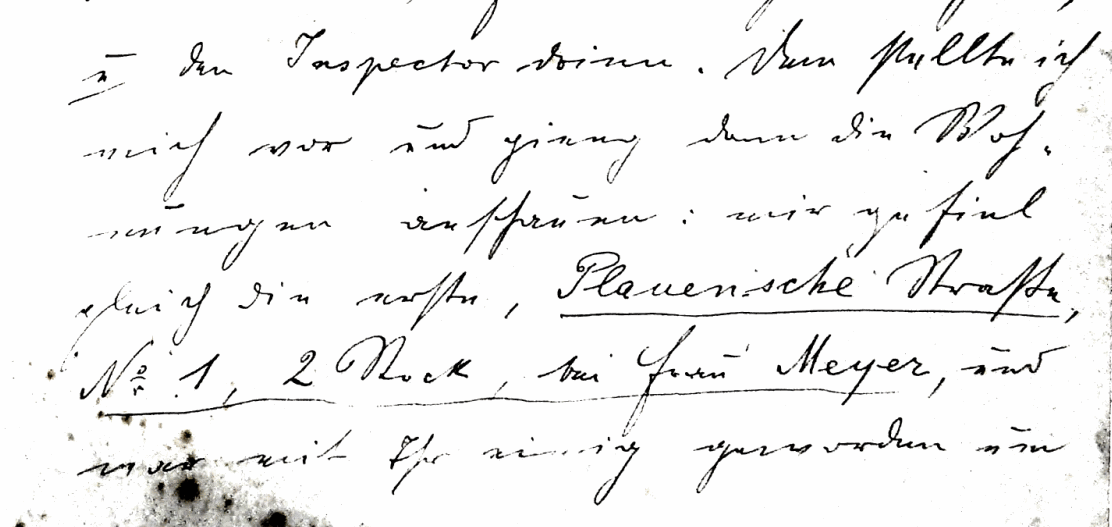 u den Inspector drinn. Dem stellte ich
mich vor und gieng dann die Woh-
nungen anschauen: mir gefiel
gleich die erste, Plauensche Straße,
No. 1, 2 Stock, bei Frau Meyer, und
war mit Ihr einig geworden um